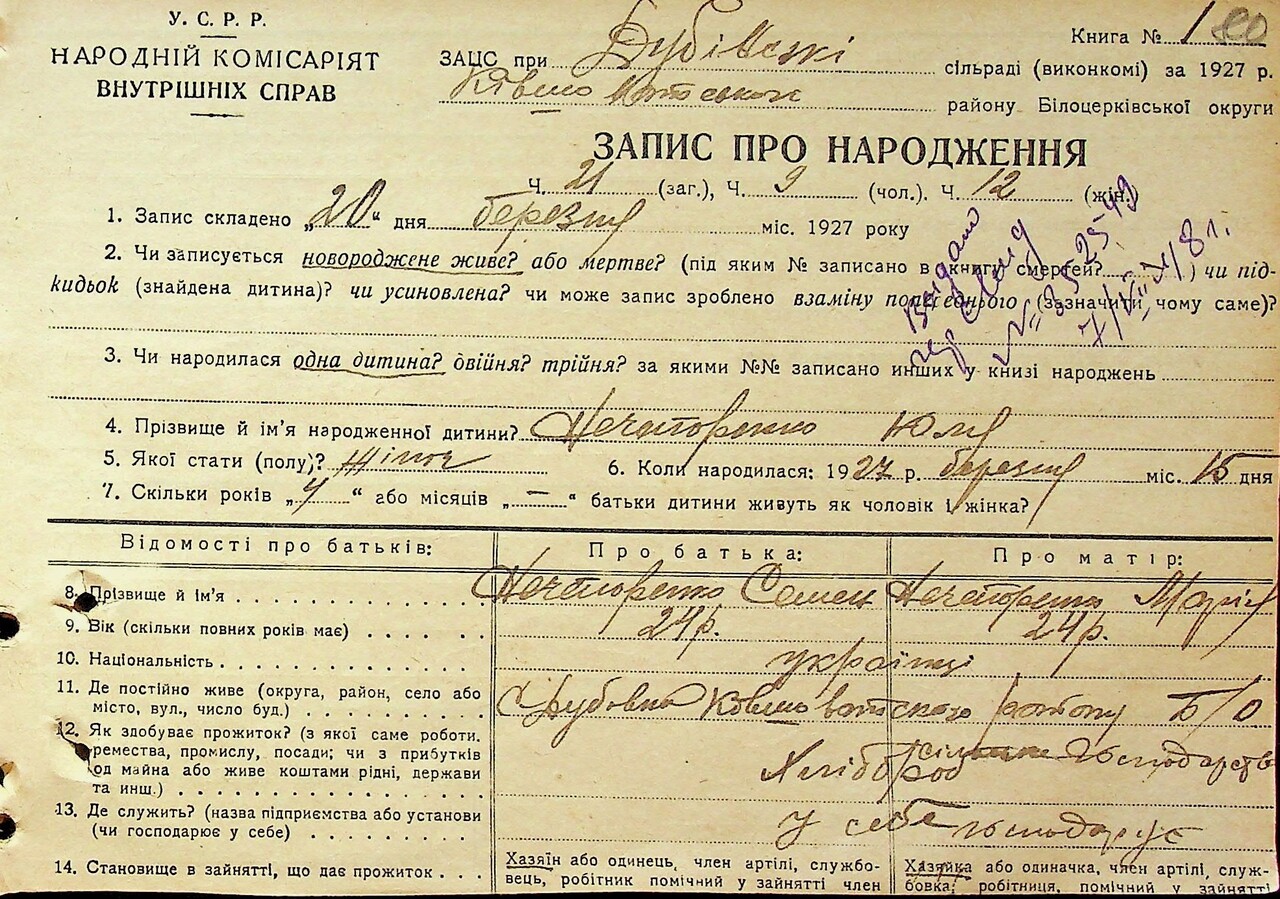 У. С. Р. Р.
НАРОДНІЙ КОМІСАРІЯТ
ВНУТРІШНІХ СПРАВ
Книга № 1
ЗАЦС при Дубівські сільраді (виконкомі) за 1927 р.
району Білоцерківської округи
ЗАПИС ПРО НАРОДЖЕННЯ
Ч. 21 (заг.), Ч. 9 (чол.). Ч. 12 (жін.)
1. Запис складено „20“ дня березня міс. 1927 року
2. Чи записується новороджене живе? або мертве? (під яким № записано в книгу смертей?) чи під-
кидьок (знайдена дитина)? чи усиновлена? чи може запис зроблено взаміну попереднього (зазначити, чому саме)?
Видано
№ 352549
3. Чи народилася одна дитина? двійня? трійня? за якими №№ записано инших у книзі народжень
4. Прізвище й ім’я народженної дитини? Нечипоренко Юлія
5. Якої стати (полу)? жіноч 6. Коли народилась: 1927 р. березня міс. 15 дня
7. Скільки років „4“ або місяців „—“ батьки дитини живуть як чоловік і жінка?
Відомості про батьків: Про батька: Про матір:
8. Прізвище й ім’я Нечипоренко Семен Нечипоренко Марія
9. Вік (скільки повних років має) 24р. 24р.
10. Національність українці
11. Де постійно живе (округа, район, село або
місто, вул., число буд.) району Б/О
12. Як здобуває прожиток? (з якої саме роботи.
ремества, промислу, посади; чи з прибутків
од майна або живе коштами рідні, держави
та инш.) Хлібороб сільське господарство
13. Де служить? (назва підприємства або установи
(чи господарює у себе) у себе господарює
14. Становище в зайнятті, що дає прожиток
Хазяїн або одинець, член артілі, службо-
вець, робітник помічний у зайнятті член
Хазяйка або одиначка, член артілі, служ-
бовка; робітниця, помічний у зайнятті